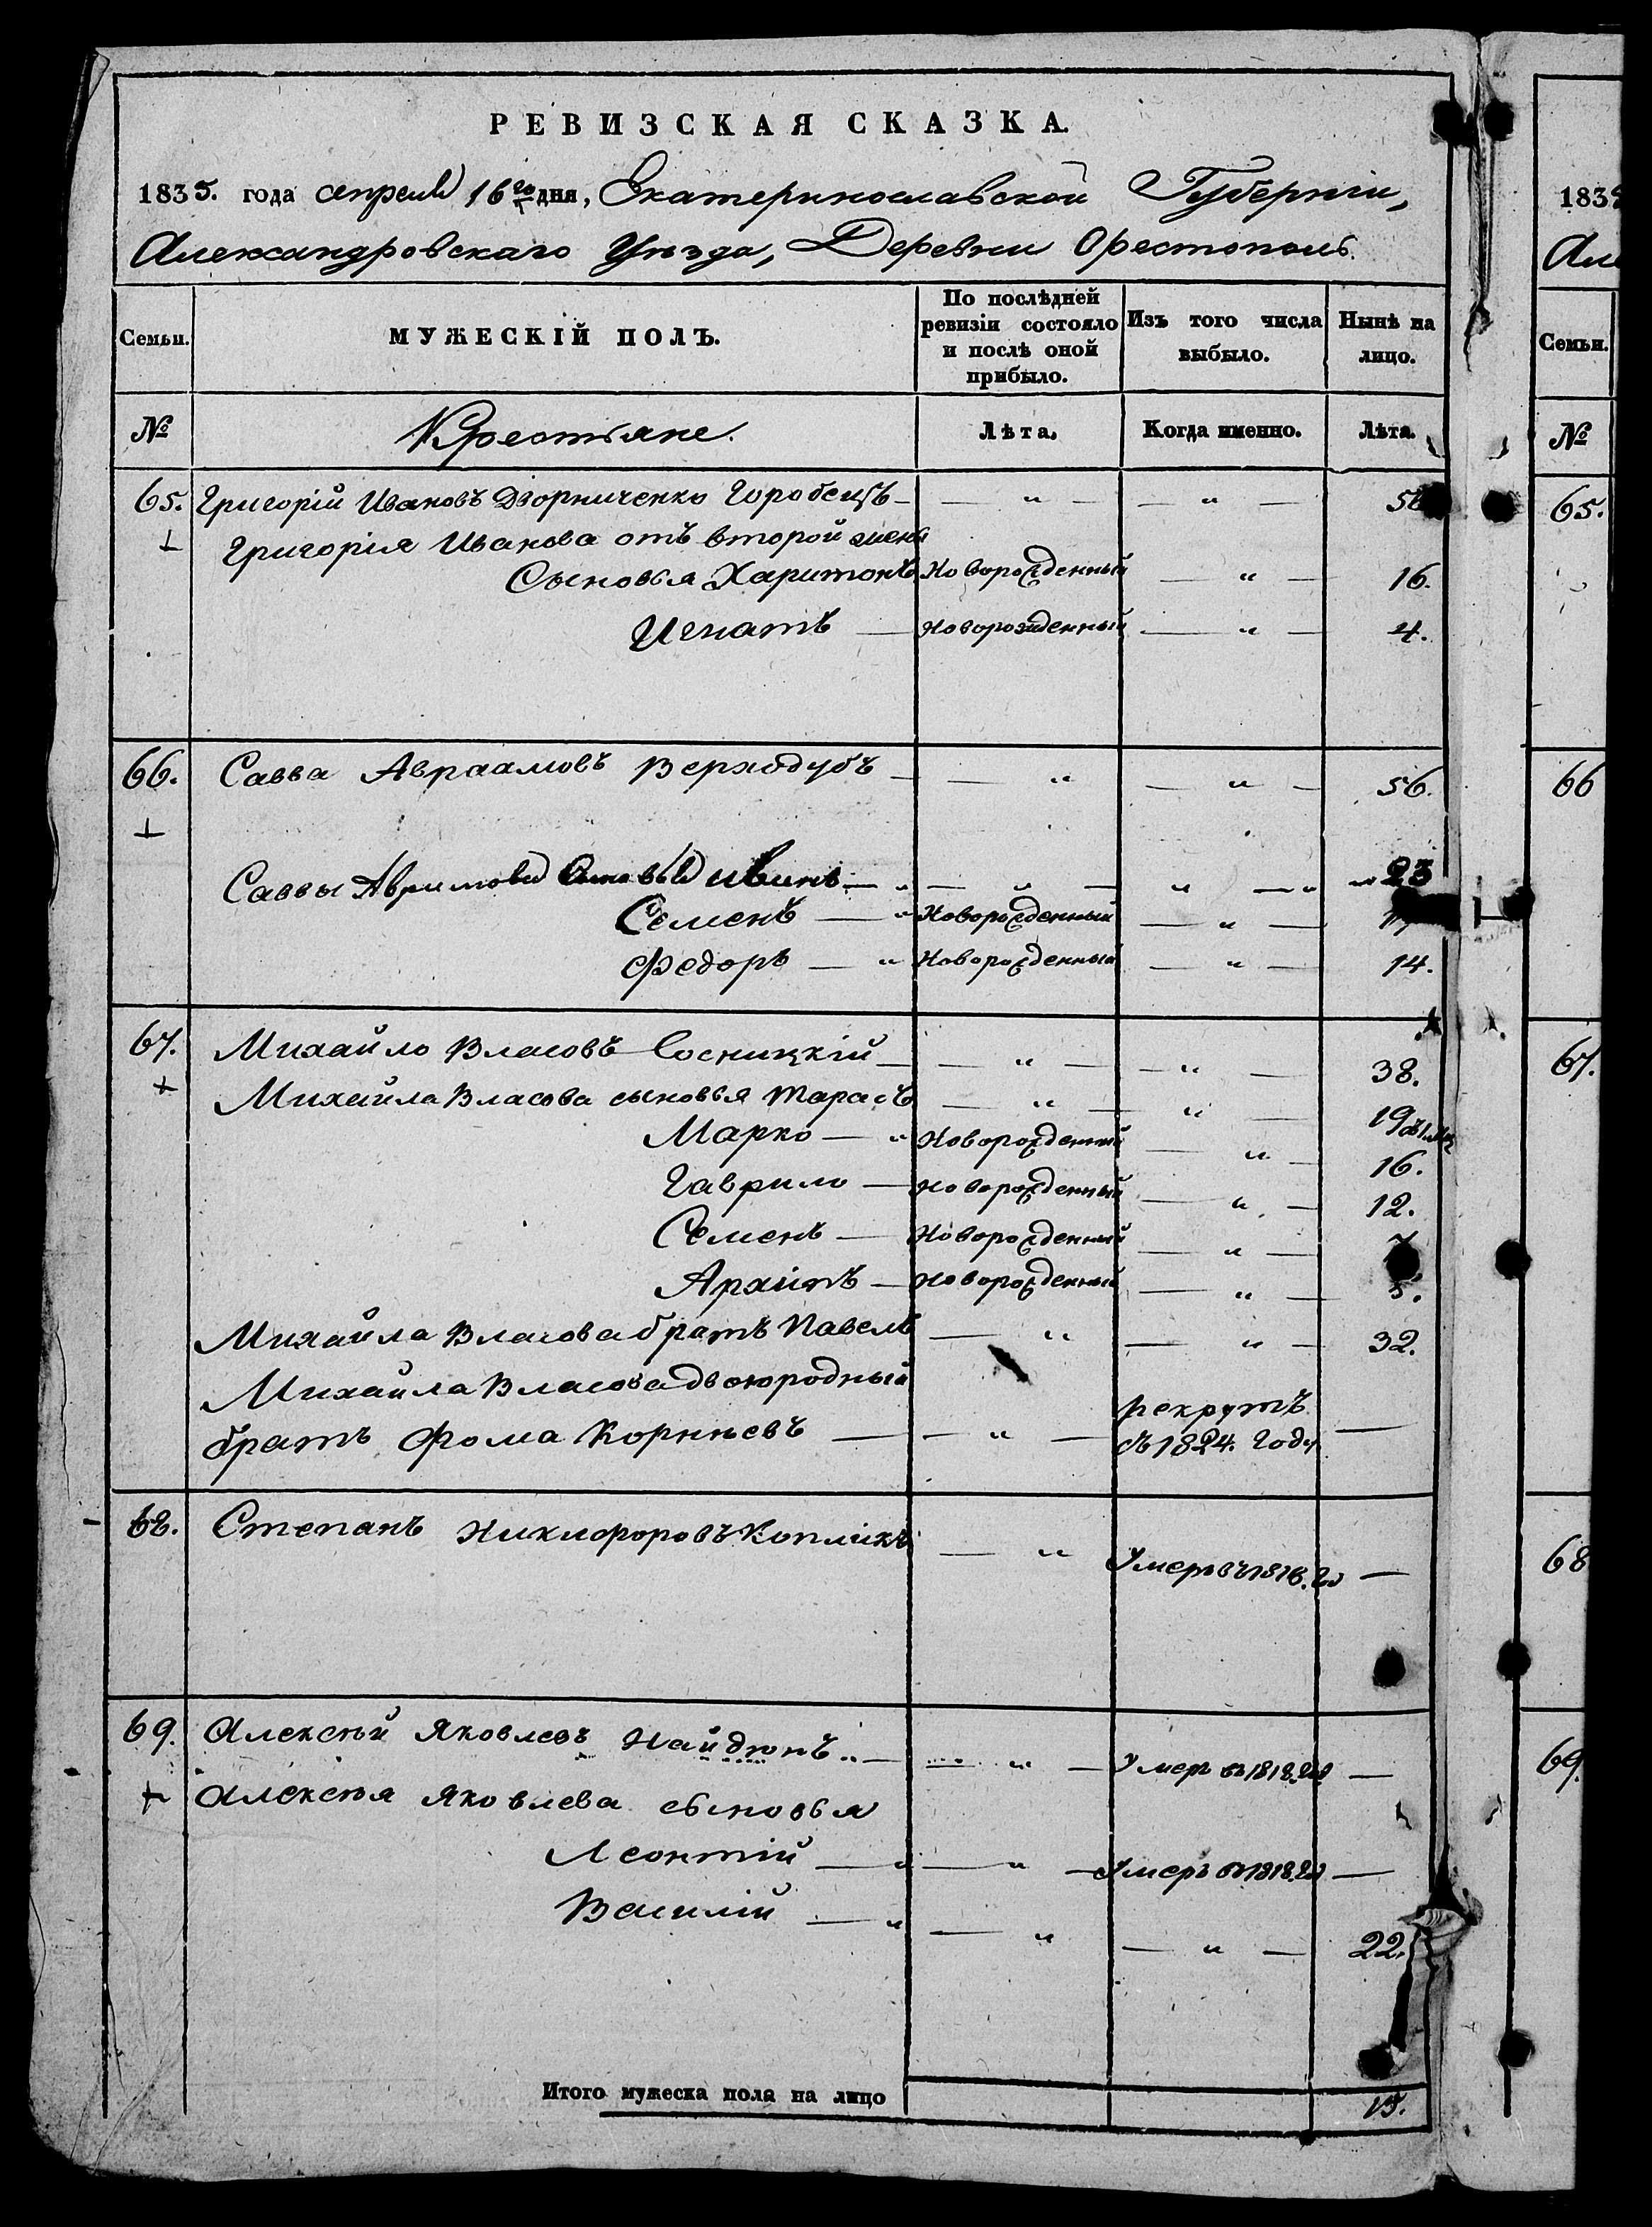 РЕВИЗСКАЯ СКАЗКА.
1835. года апреля 16го дня, Екатеринославской Губерніи,
Александровскаго Уѣзда, Деревни Орестополь.
Семьи. МУЖЕСКІЙ ПОЛЪ. По послѣдней ревизіи состояло и послѣ оной прибыло. Изъ того числа выбыло. Нынѣ на лицо.
№ Крестьяне. Лѣта, Когда именно. Лѣта.
65. Григорій Ивановъ Дворниченко Горобецъ — — " — — " —
Григорія Иванова отъ второй жены
Сыновья Харитонъ Новорожденный — " — 16.
Игнатъ — Новорожденный — " — 4.
66. Савва Авраамовъ Верходубъ — — " — " — 56.
Саввы Аврамова Сыновья Иванъ — " — " — " — " 23
Семенъ — " Новорожденный — " —
Федоръ — " Новорожденный — " — 14.
67. Михайло Власовъ Сосницкій — — " — — " — 38.
Михайла Власова сыновья Тарасъ — " — " — 19
Марко — " Новорожденный — " — 16.
Гаврило — Новорожденный — " — 12.
Семенъ — Новорожденный — " — 7.
Архипъ — Новорожденный — " — 5.
Михайла Власова братъ Павелъ — " — " — 32.
Михайла Власова двоюродный
братъ Фома Корнѣевъ — — " — рекрутъ съ 1824. году —
68. Степанъ Никифоровъ Копликъ — " Умеръ въ 1818. го —
69. Алексѣй Яковлевъ Найдюнъ " — — " — Умеръ въ 1818. го —
Алексѣя Яковлева сыновья
Леонтій — " — " — Умеръ въ 1818. го —
Василій — " — " — " — 22.
Итого мужеска пола на лицо 15.
1835
Але
Семьи.
№
65.
66
67.
68
69.